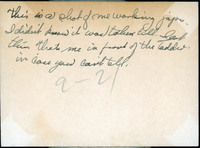 this is a shot of me working
I didn't know it was taken till
then that's me in front of the ladder
in case you can't tell.
9-21